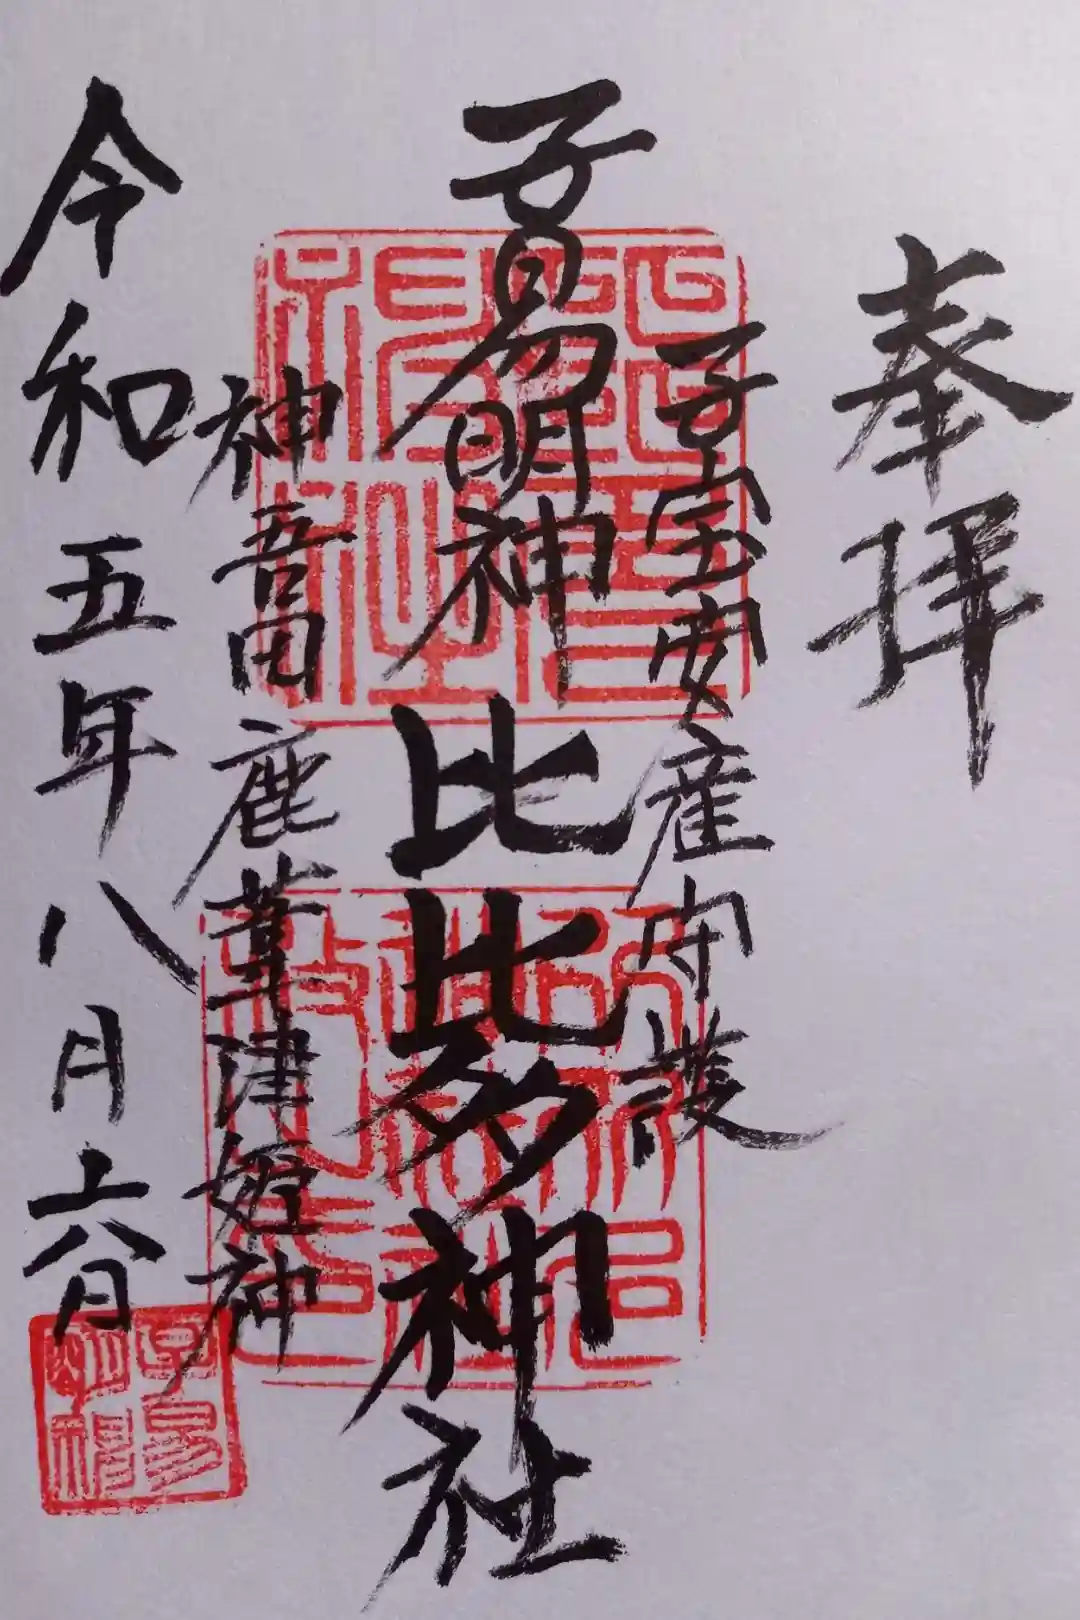 奉拝
子宝安産守護
子易明神 比比多神社
神吾田鹿葦津姫神
令和五年八月六日
子易
明神